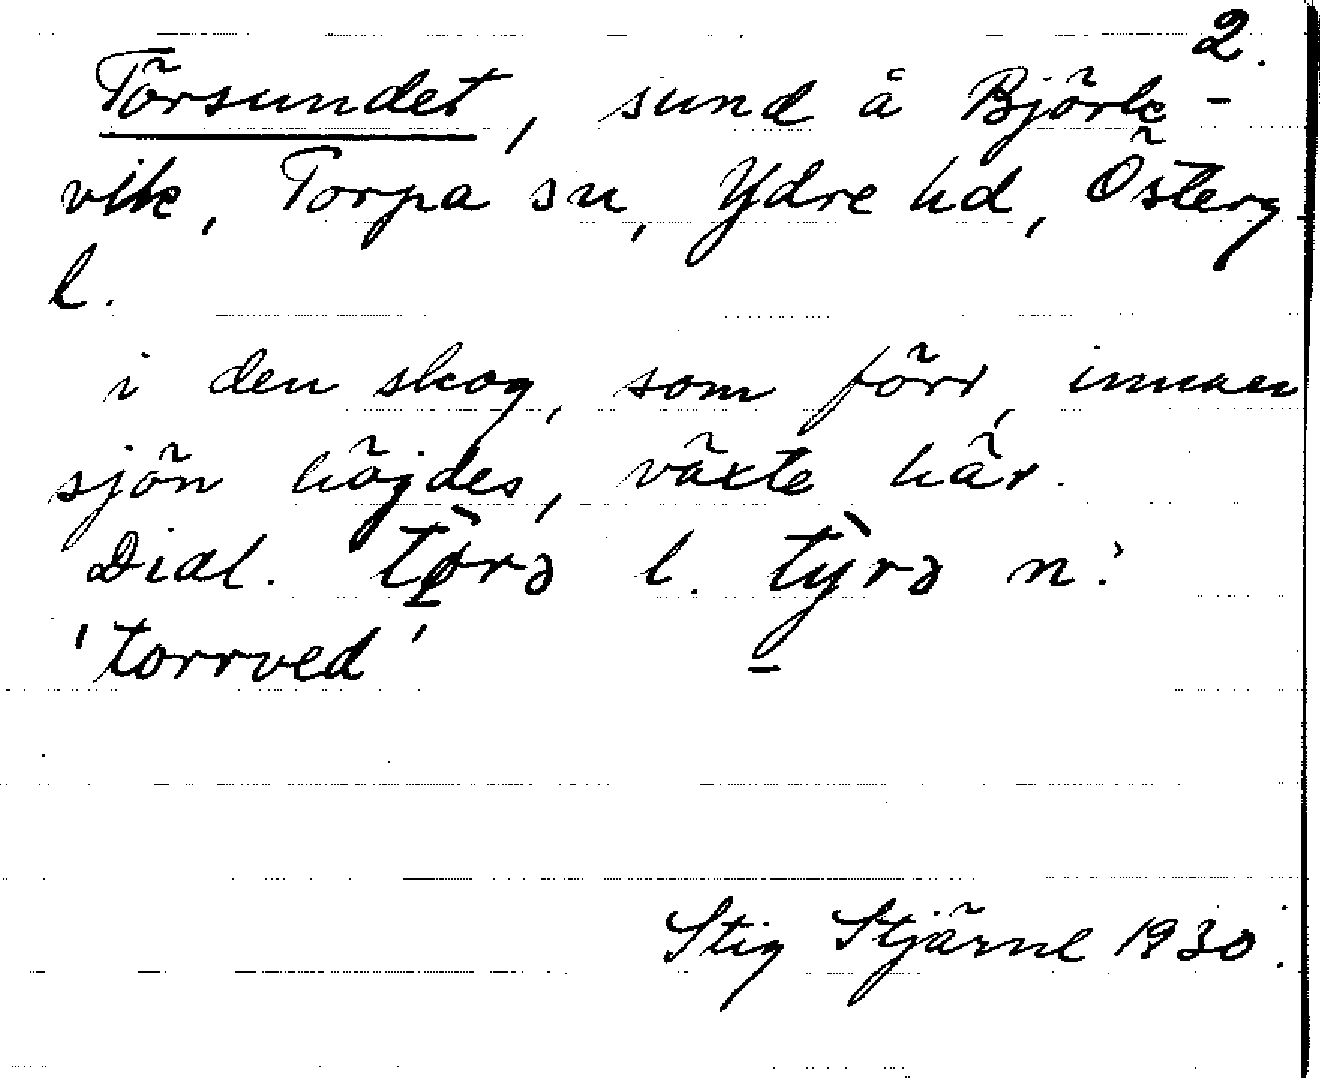 2.
Törsundet, sund å Björk-
vik, Torpa sn, Ydre hd, Österg
l.
i den skog, som förr, innan
sjön höjdes, växte här.
Dial. tö̀rə l. tỳrə n.
'torrved'
Stig Stjärne 1930.